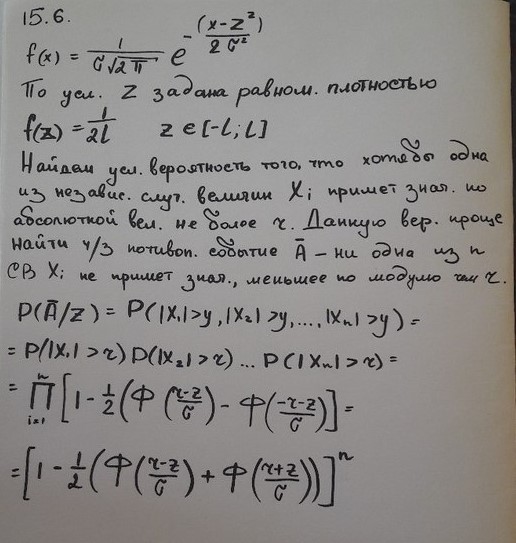 15.6.
f(x) = 1/(σ√2π) e^-((x-z^2)/(2σ^2))
По усл. Z задана равном. плотностью
f(z) = 1/2l z ∈ [-l; l]
Найдем усл. вероятность того, что хотя бы одна
из независ. случ. величин Xi примет знач. по
абсолютной вел. не более r. Данную вер. проще
найти ч/з потивоп. событие Ā – ни одна из n
СВ Xi не примет знач., меньшее по модулю чем r.
P(Ā/z) = P(|X1|>y, |X2|>y, ..., |Xn|>y) =
= P(|X1|>r) P(|X2|>r) ... P(|Xn|>r) =
= ∏_{i=1}^{n} [1 - 1/2 (Φ((r-z)/σ) - Φ((-r-z)/σ)] =
= [1 - 1/2 (Φ((r-z)/σ) + Φ((r+z)/σ))]^n